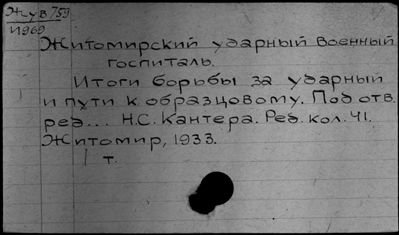 Жув 759
И969
Житомирский ударный военный
госпиталь.
Итоги борьбы за ударный
и пути к образцовому. Под отв.
ред... Н.С. Кантера. Ред. кол. Ч1.
Житомир, 1933.
т.